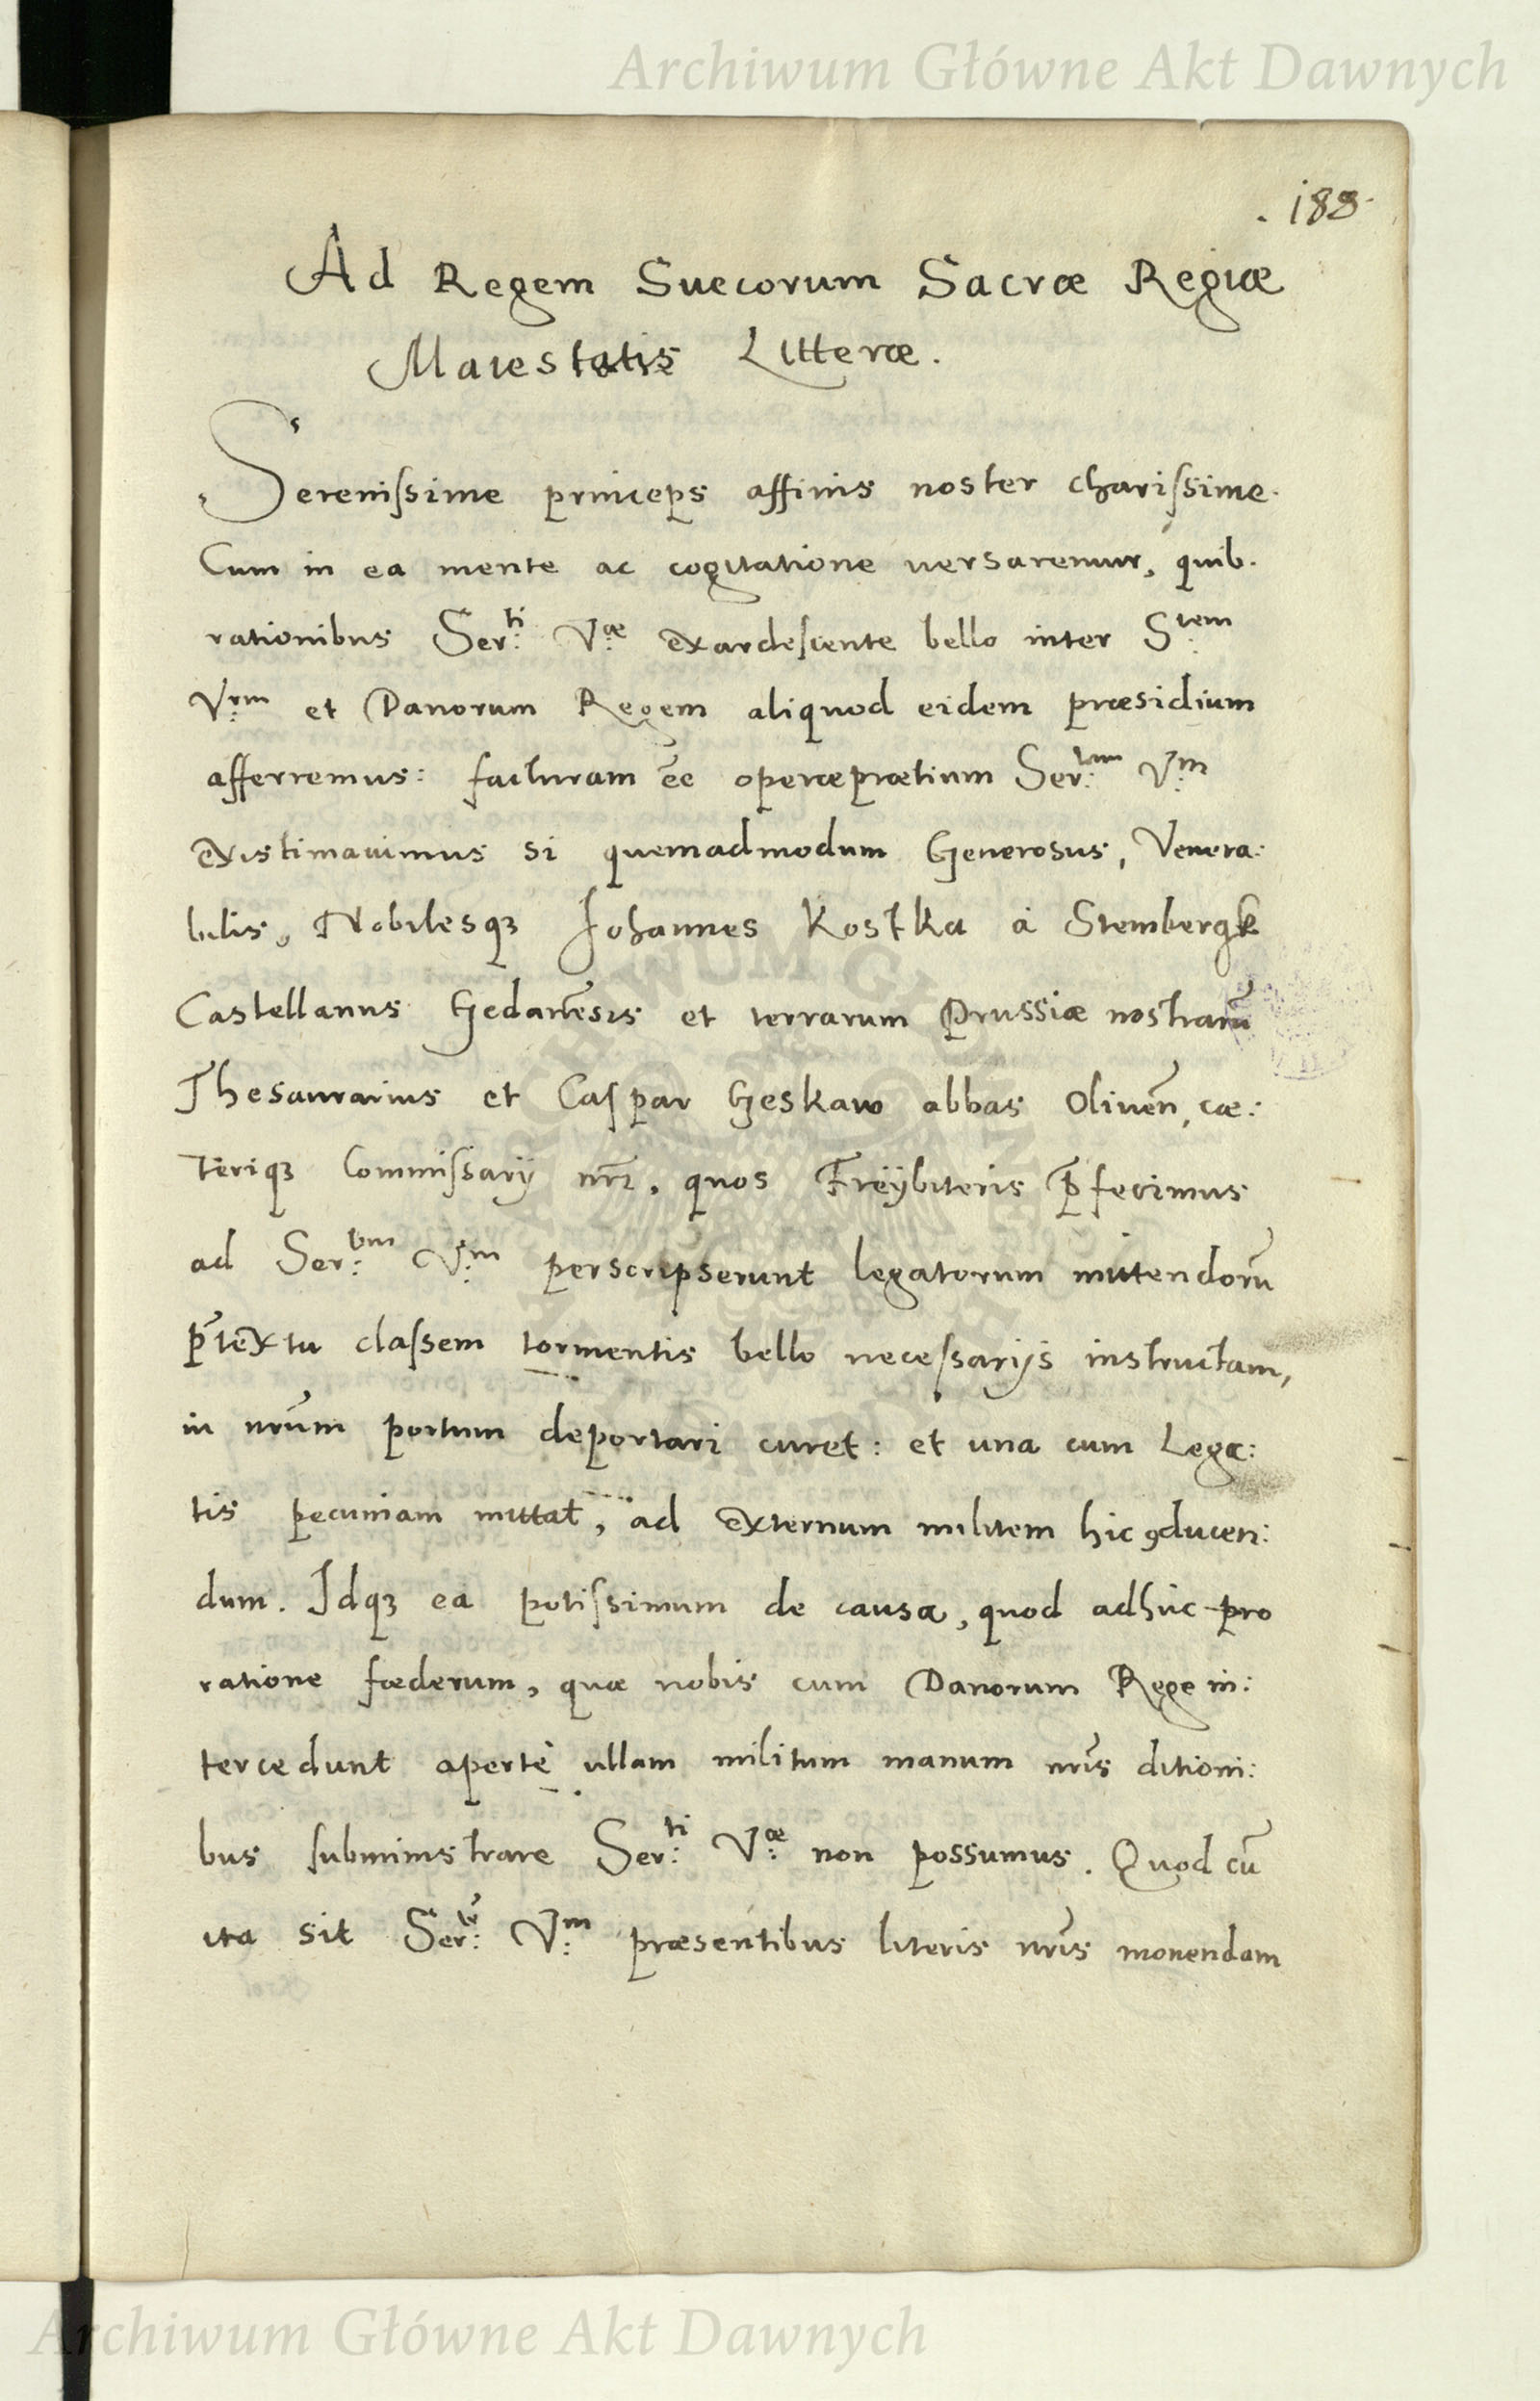 Archiwum Główne Akt Dawnych
. 188.
Ad Regem Suecorum Sacræ Regiæ
Maiestatis Litteræ.
Serenissime princeps affinis noster charissime.
Cum in ea mente ac cogitatione uersaremur, quib.
rationibus Ser:ti V:æ exardescente bello inter S:tem
V:rm et Danorum Regem aliquod eidem præsidium
afferremus: facturam ēē operæprætium Ser:tem V:m
existimauimus si quemadmodum Generosus, Venera:
bilis, Nobilesqꝫ Johannes Kostka à Stembergk
Castellanus Gedanēsis et terrarum Prussiæ nostrarū
Thesaurarius et Caspar Geskaw abbas Oliuen̄, cæ:
teriqꝫ Commissarij nr̄i, quos Freÿbiteris p̄fecimus
ad Ser:tem V:m perscripserunt legatorum mittendorū
p̄textu classem tormentis bello necessarijs instructam,
in nr̄um portum deportari curet: et una cum Lega:
tis pecuniam mittat, ad externum militem hic ꝯducen:
dum. Idqꝫ ea potissimum de causa, quod adhuc pro
ratione fœderum, quæ nobis cum Danorum Rege in:
tercedunt apertè ullam militum manum nr̄is ditioni:
bus subministrare Ser:ti V:æ non possumus. Quod cū
ita sit Ser:tē V:m præsentibus literis nr̄is monendam
Archiwum Główne Akt Dawnych